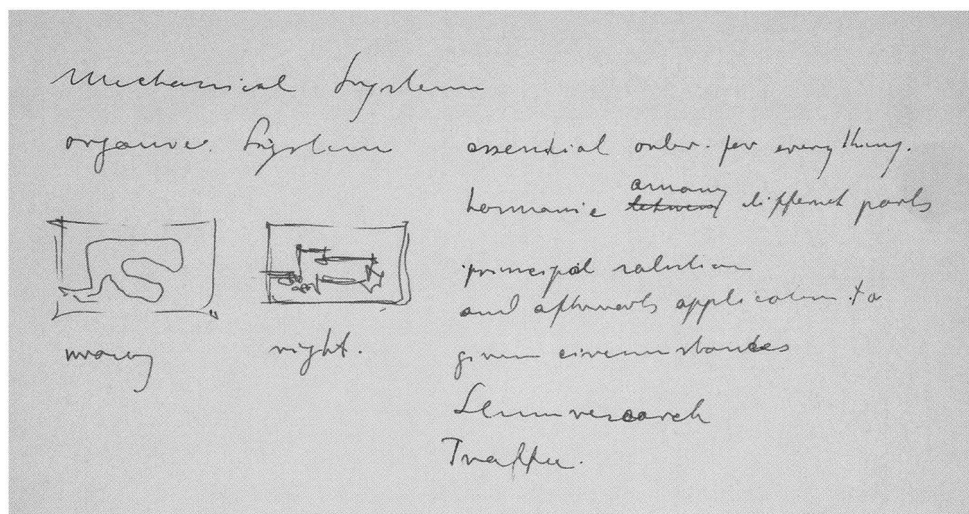 Mechanical System
organic System
wrong
right.
essendial order for everything.
harmonie among different parts
principal solution
and afterwards application to
given circumstances
Slumresearch
Traffic.